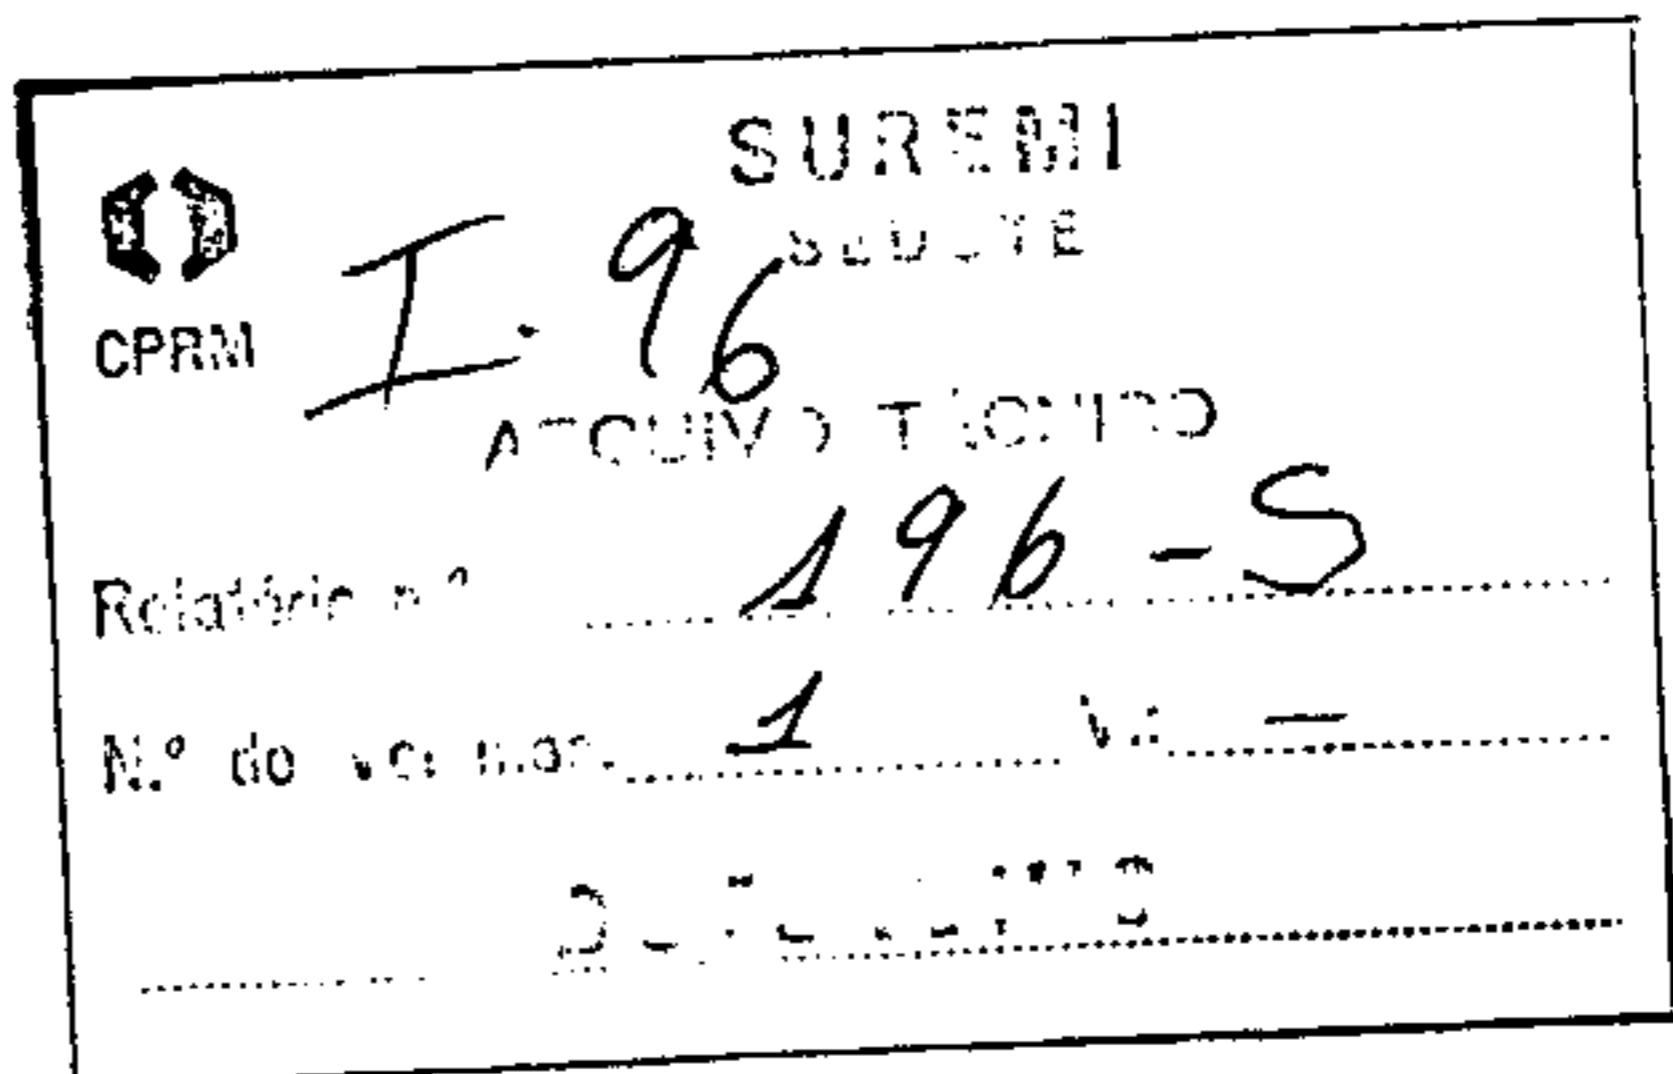 SUREMI
SEDOTE
CPRM
I. 96
ARQUIVO TÉCNICO
Relatório n.º 196-S
N.º de volumes: 1 V: —